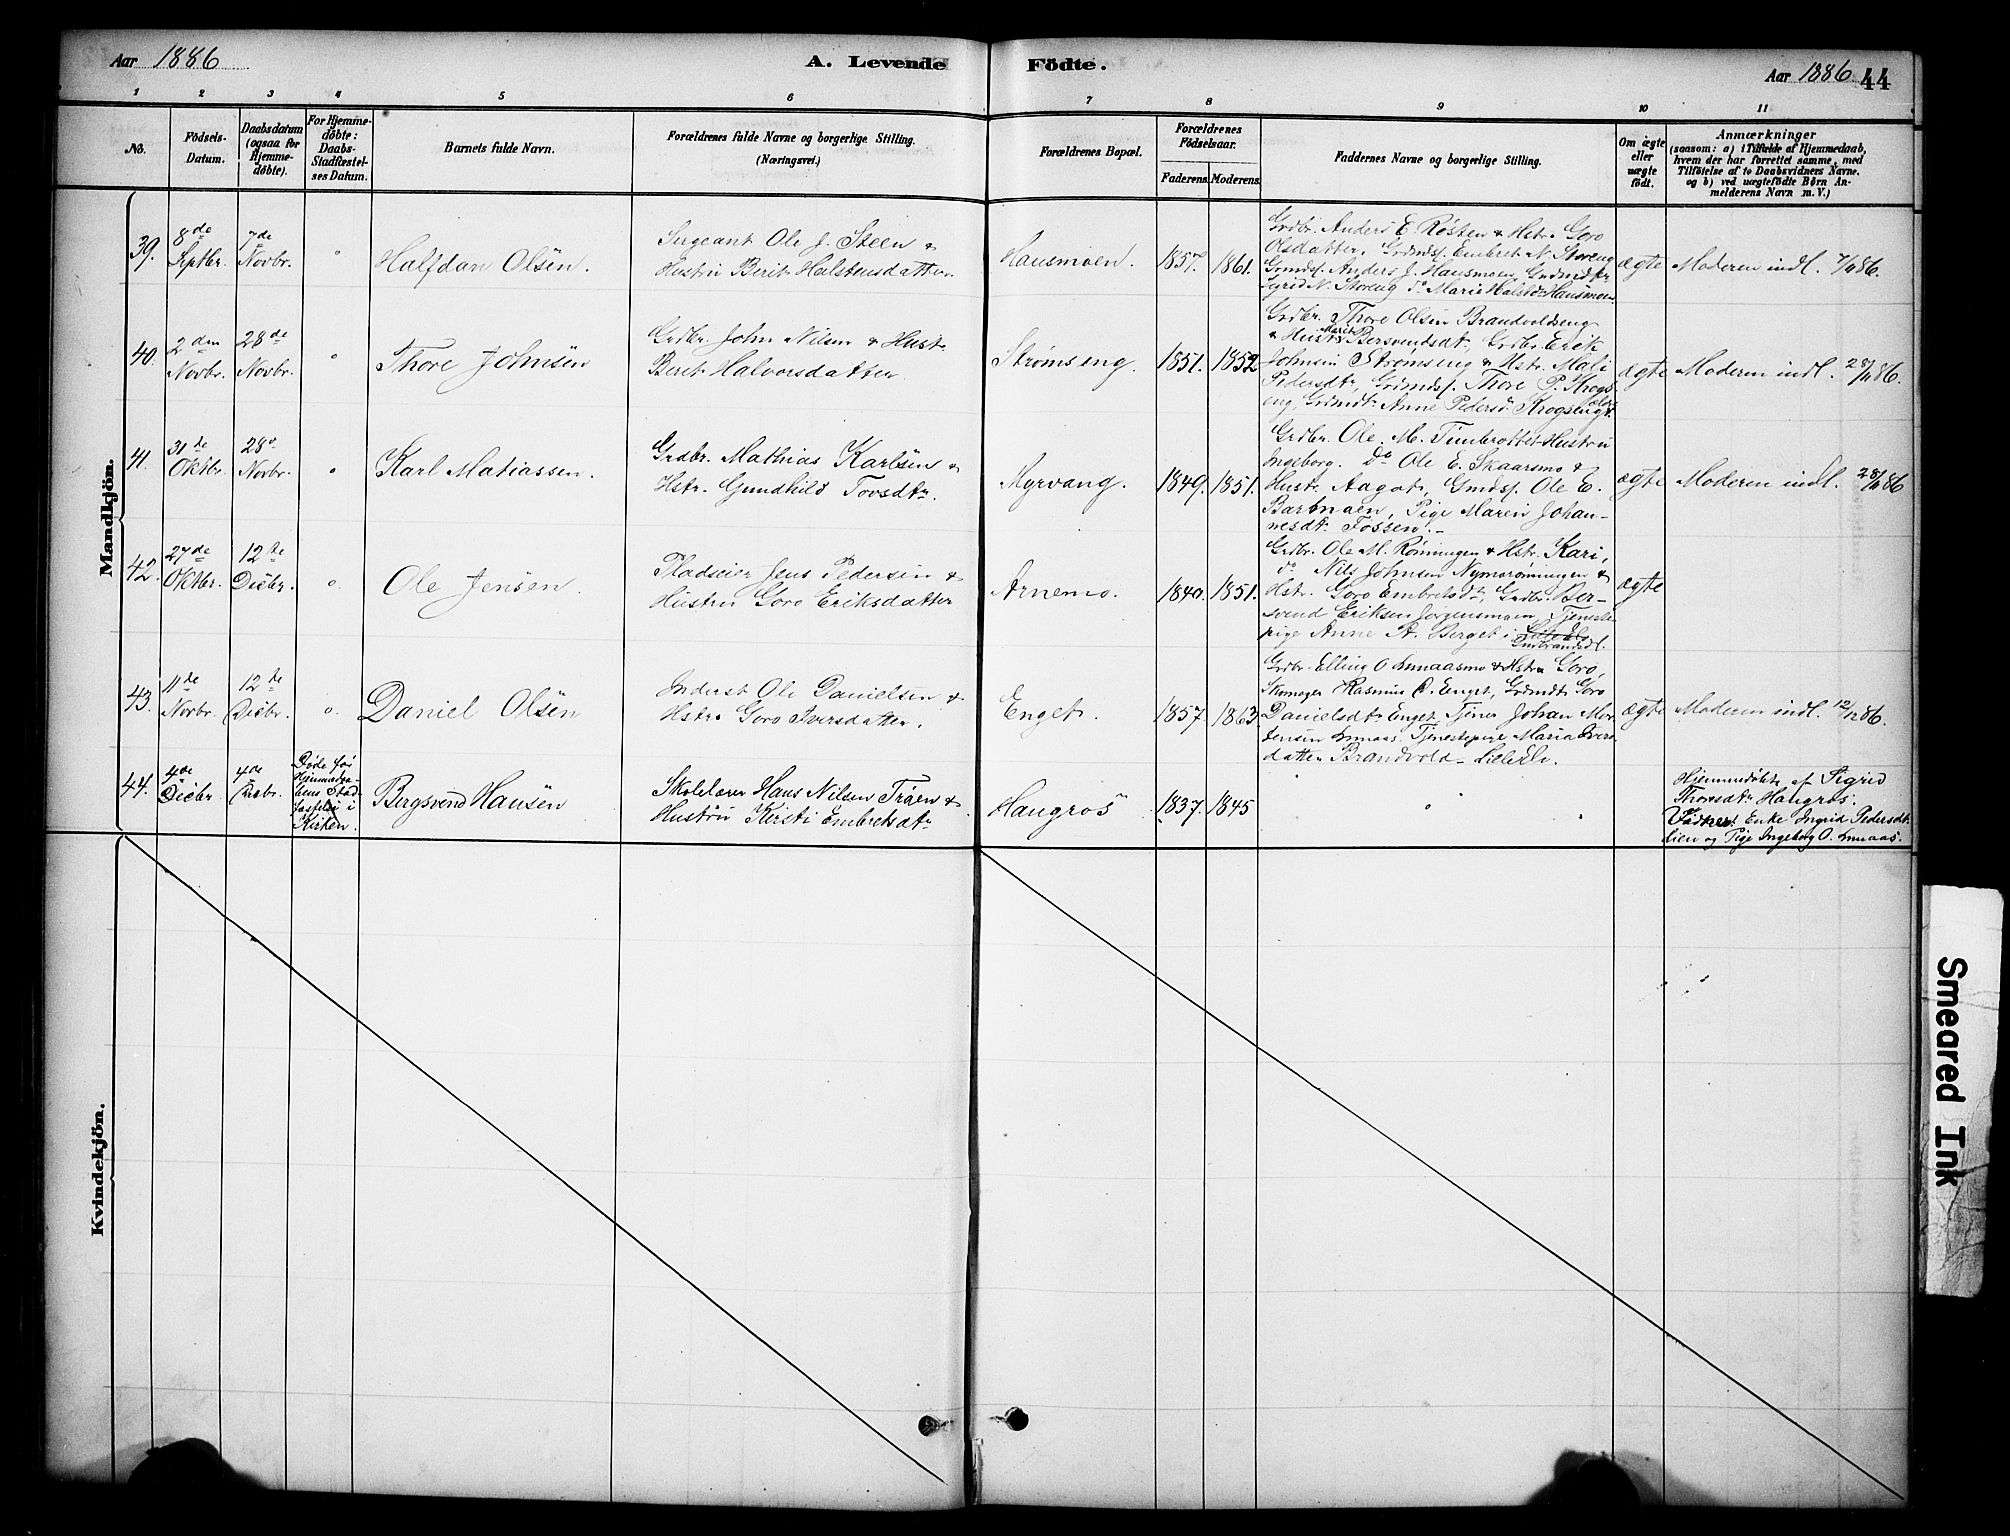 Aar 1886
A. Levende Födte.
Aar 1886. 44
1 2 3 4 5 6 7 8 9 10 11
No.
Födsels-Datum.
Daabsdatum (ogsaa for Hjemme-döbte).
For Hjemme-döbte: Daabs-Stadfæstel-ses Datum.
Barnets fulde Navn.
Forældrenes fulde Navne og borgerlige Stilling.
(Næringsvei.)
Forældrenes Bopæl.
Forældrenes Födselsaar.
Faderens. Moderens.
Faddernes Navne og borgerlige Stilling.
Om ægte eller uægte födt.
Anmærkninger
(saasom: a) i Tilfælde af Hjemmedaab,
hvem der har forrettet samme, med
Tilföielse af to Daabsvidners Navne.
og b) ved uægtefödte Börn An-
melderens Navn m. V.)
Mandkjön.
39. 8de Septbr. 7de Novbr. " Halfdan Olsen.
Sergeant Ole J. Steen &
Hustru Berit Halstensdatter.
Hausmoen. 1857. 1861.
Grdbr. Anders E. Røsten & Hstr. Goro
Olsdatter, Grdmds. Embret N. Storeng
Grmds. Anders J. Hausmoen, Grdmdtr
Sigrid N. Storeng do Marie Halstd. Hausmoen
ægte Moderen indl. 7/11 86.
40. 2den Novbr. 28de Novbr. " Thore Johnsen
Grdbr. John Nilsen & Hustr.
Berit Halvorsdatter
Strømseng. 1851. 1852
Grdbr. Thore Olsen Brandvoldseng
& Hustr. Marit Bersvendsdt., Grdbr. Erik
Johnsen Strømseng & Hstr. Mali
Pedersdtr, Grdmds. Thore P. Krogs-
eng, Grdmdtr Anne Pedersd. Krogseng
ægte Moderen indl. 28/11 86.
41. 31te Oktbr. 28de Novbr. " Karl Matiassen.
Grdbr. Mathias Karlsen &
Hstr. Gundhild Tovsdtr.
Myrvang. 1849. 1851.
Grdbr. Ole M. Hustru
Ingeborg. Do Ole E. Skaarsmo &
Hustr. Aagot, Gmds. Ole E.
Pige Maren Johan-
nesdtr. Fossen. -
ægte Moderen indl. 28/11 86
42. 27de Oktbr. 12te Decbr. " Ole Jensen.
Pladseier Jens Pedersen &
Hustru Goro Eriksdatter
Arnemo. 1840. 1851.
Grdbr. Ole M. Rønningen & Hstr. Kari,
do Nils Johnsen Nymorønningen &
Hstr. Goro Embretsdtr, Grdbr. Ber-
svend Eriksen Jørgensmoen, Tjeneste-
pige Anne A. Berget i Lille Elv
Gudbrandsdl.
ægte
43. 11te Novbr. 12te Decbr. " Daniel Olsen
Inderst Ole Danielsen &
Hstr. Goro Iversdatter.
Enget. 1857. 1863.
Grdbr. Elling O. Lunaasmo & Hstru Goro,
Skomager Rasmus D. Enget, Grdmdtr Goro
Danielsdtr Enget, Tjener Johan Mor-
tensen Lunaas. Tjenestepige Maria Ivers-
datter Brandvold - LilleElv.
ægte Moderen indl. 12/12 86.
44. 4de Decbr 4de Decbr. Døde før Hjemmedaa-bens Stad-fæstelse i Kirken.
Bergsvend Hansen
Skolelærer Hans Nilsen Trøen &
Hustru Kirsti Embretsdtr
Haugros 1837. 1845 " "
Hjemmedøbte af Sigrid
Thoresdtr Haugros.
Vidner: Enke Ingrid Pedersdt.
Lien og Pige Ingeborg O. Lunaas.
Kvindekjön.
Smeared Ink